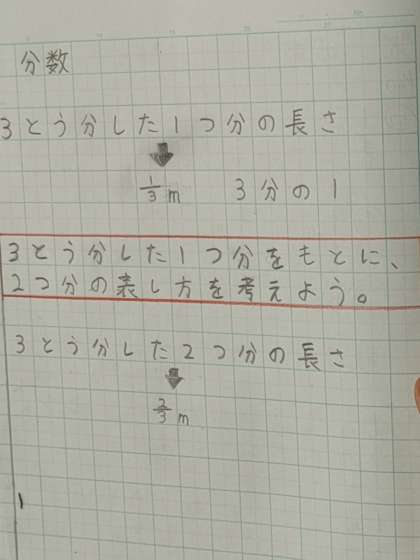 分数
3とう分した1つ分の長さ
1/3 m 3分の1
3とう分した1つ分をもとに、
2つ分の表し方を考えよう。
3とう分した2つ分の長さ
2/3 m